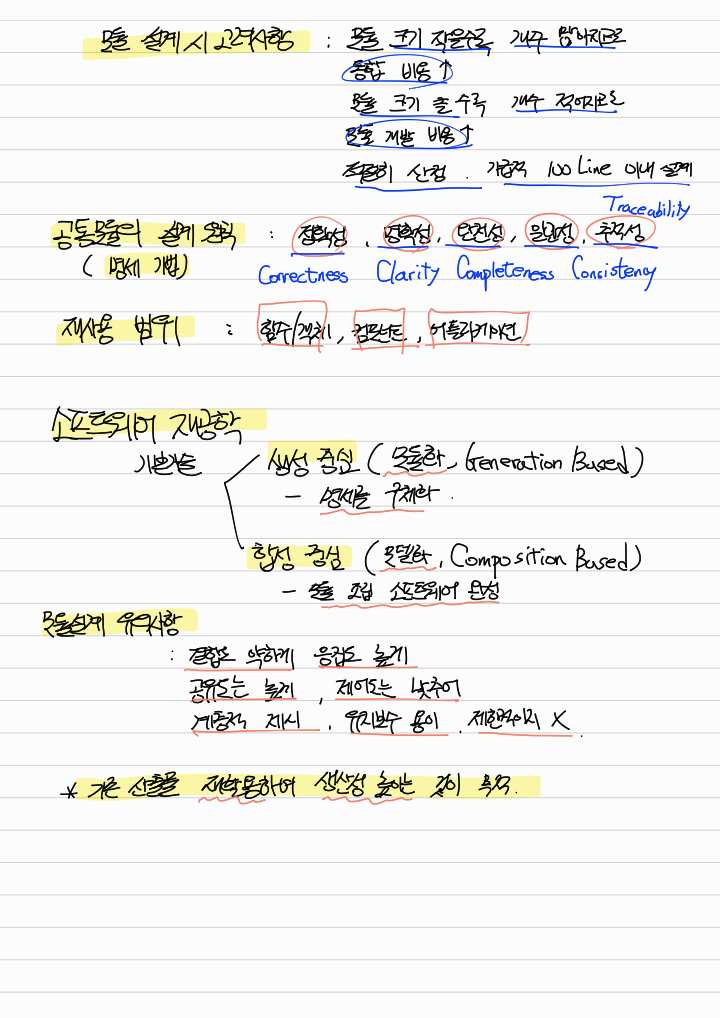 모듈 설계 시 고려사항 : 모듈 크기 작을수록 개수 많아지므로
통합 비용 ↑
모듈 크기 클수록 개수 적어지므로
모듈 개발 비용 ↑
적절히 산정. 가급적 100 Line 이내 설계
Traceability
공통모듈의 설계 원칙 : 정확성, 명확성, 완전성, 일관성, 추적성
(명세 기법) Correctness Clarity Completeness Consistency
재사용 범위 : 함수/객체, 컴포넌트, 어플리케이션
소프트웨어 재공학
생성 중심 (모듈화, Generation Based)
기반기술
- 명세를 구체화.
합성 중심 (모델화, Composition Based)
- 모듈 조립 소프트웨어 완성
모듈설계 유의사항
: 결합도 약하게 응집도 높게
공유도는 높게, 제어도는 낮추어
계층적 제시, 유지보수 용이, 제한적이지 X.
* 기존 산출물 재활용하여 생산성 높이는 것이 목적.